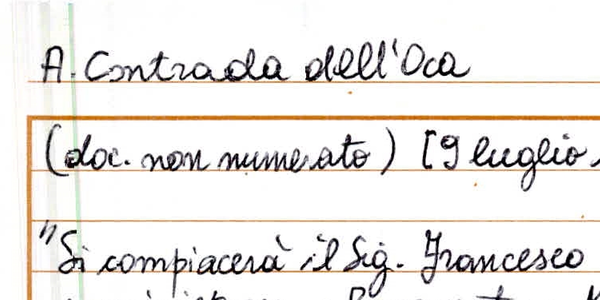 A. Contrada dell'Oca
(doc. non numerato) [9 luglio
"Si compiacerà il Sig. Francesco